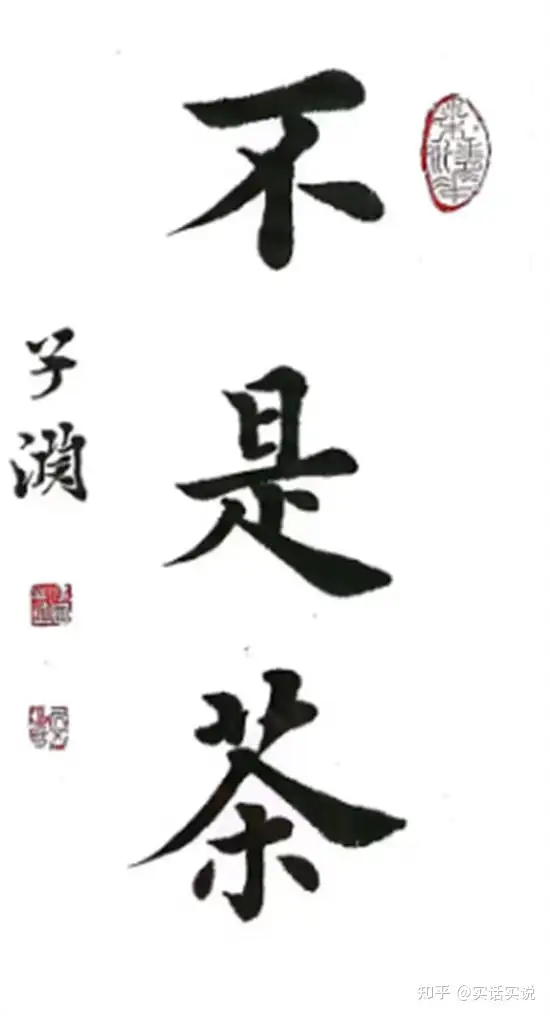 不是茶
子渊
知乎 @实话实说